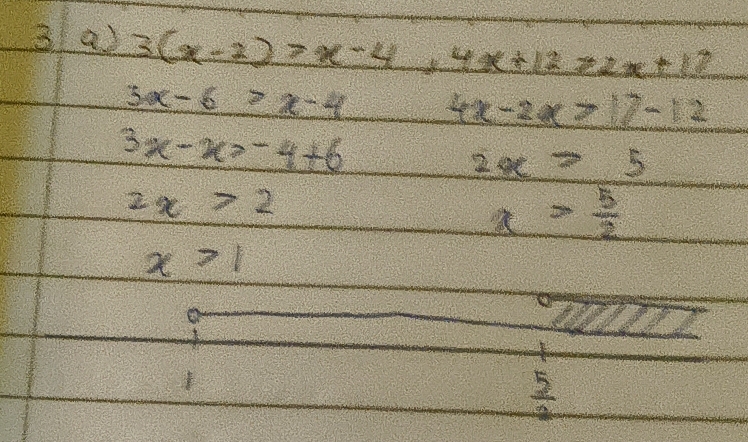 3 a) 3(x-2) > x-4 , 4x+12 > 2x+17
3x-6 > x-4 4x-2x > 17-12
3x-x > -4+6 2x > 5
2x > 2 x > 5/2
x > 1
1 5/2